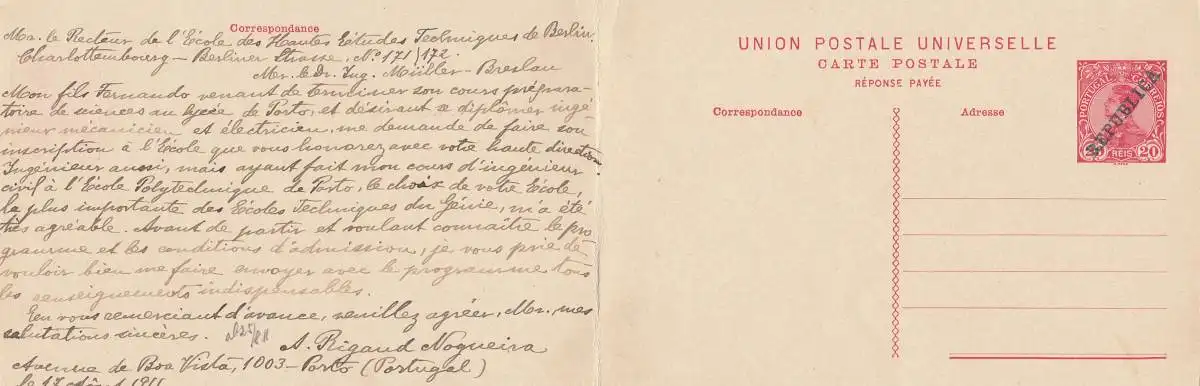 Correspondance
Mr. le Recteur de l'École des Hautes Études Techniques de Berlin.
Charlottembourg — Berliner Strasse, No 171/172.
Mr. le Dr. Ing. Müller-Breslau
Mon fils Fernando venant de terminer son cours prépara-
toire de sciences au lycée de Porto, et désirant se diplômer ingé-
nieur mécanicien et électricien, me demande de faire son
inscription à l'École que vous honorez avec votre haute direction.
Ingénieur aussi, mais ayant fait mon cours d'ingénieur
civil à l'École Polytechnique de Porto, le choix de votre École,
la plus importante des Écoles Techniques du Génie, m'a été
très agréable. Avant de partir et voulant connaître le pro-
gramme et les conditions d'admission, je vous prie de
vouloir bien me faire envoyer avec le programme tous
les renseignements indispensables.
En vous remerciant d'avance, veuillez agréer, Mr., mes
salutations sincères.
A. Rigaud Nogueira
Avenue de Boa Vista, 1003 — Porto (Portugal)
le 17 août 1911
UNION POSTALE UNIVERSELLE
CARTE POSTALE
RÉPONSE PAYÉE
Correspondance
Adresse
PORTUGAL CORREIOS
REPUBLICA
REIS 20